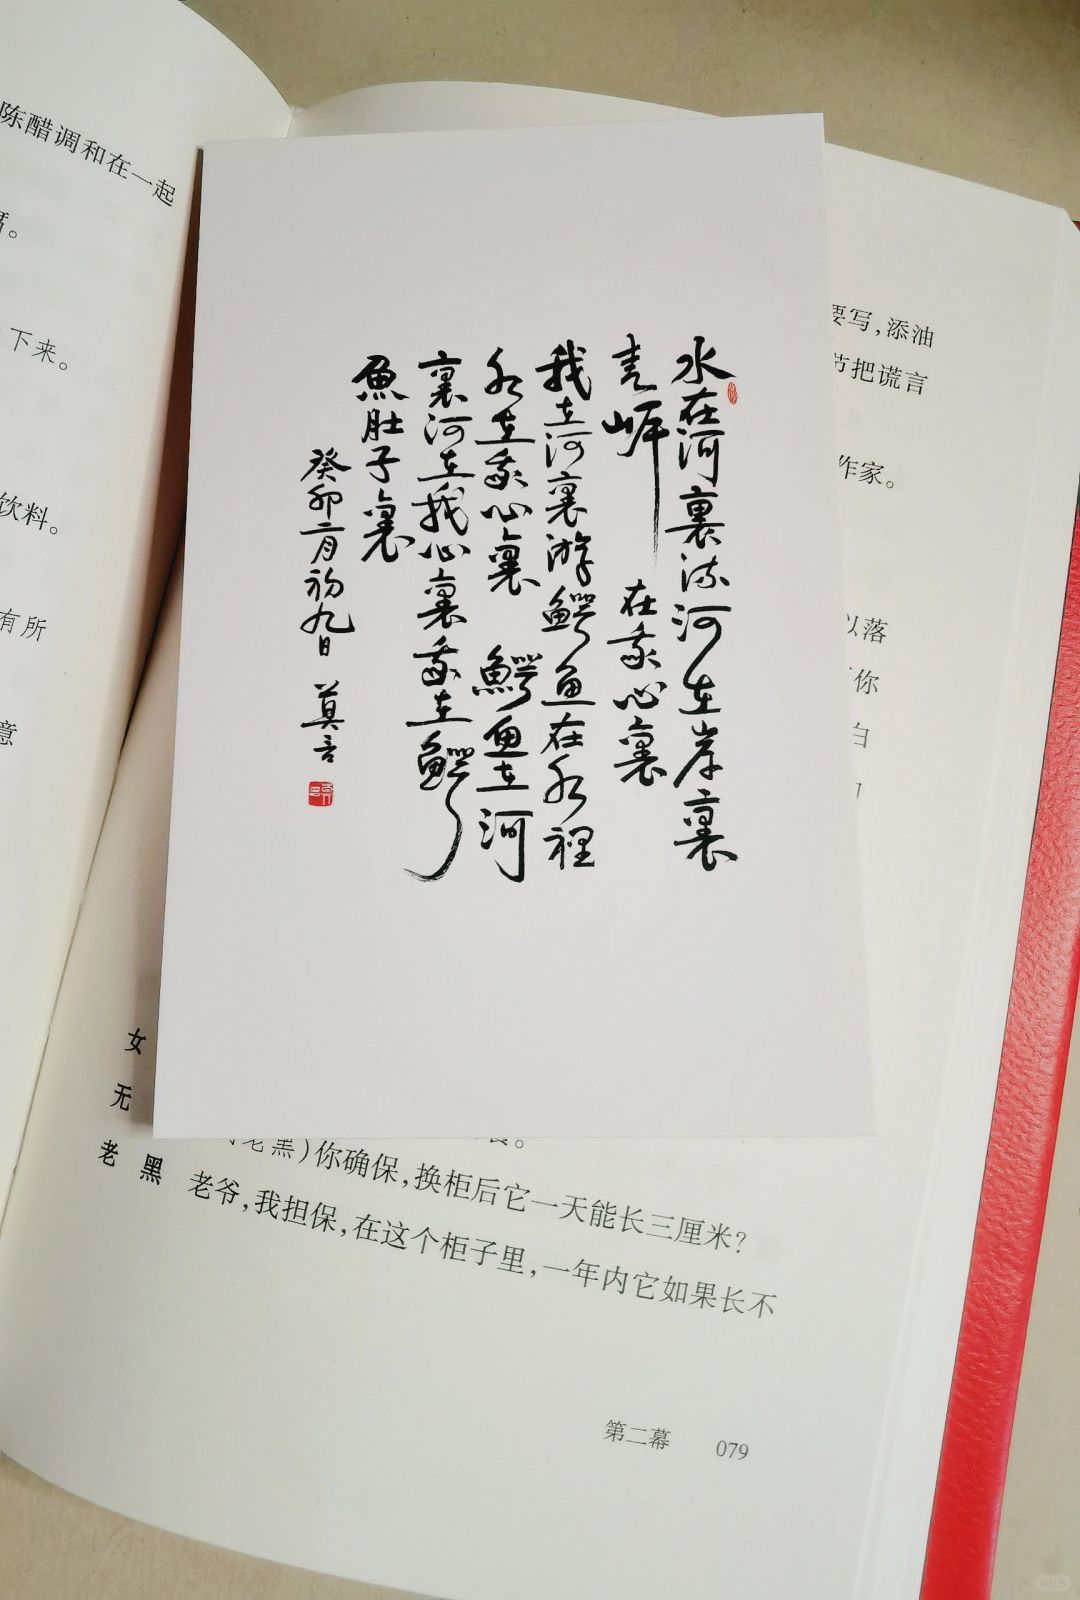 陈醋调和在一起
下来。
饮料。
有所
意
水在河裏流河在岸裏
走岸 在我心裏
我在河裏游鰐魚在水裡
水在我心裏 鰐魚在河
裏河在我心裏我在鰐
魚肚子裏
癸卯二月初九日 莫言
要写，添油
节把谎言
作家。
以落
你
白
女
无
老黑）你确保，换柜后它一天能长三厘米？
老 黑 老爷，我担保，在这个柜子里，一年内它如果长不
第二幕 079